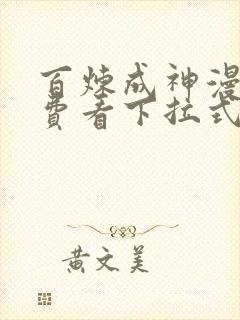 百炼成神漫
费看下拉式
黄文美